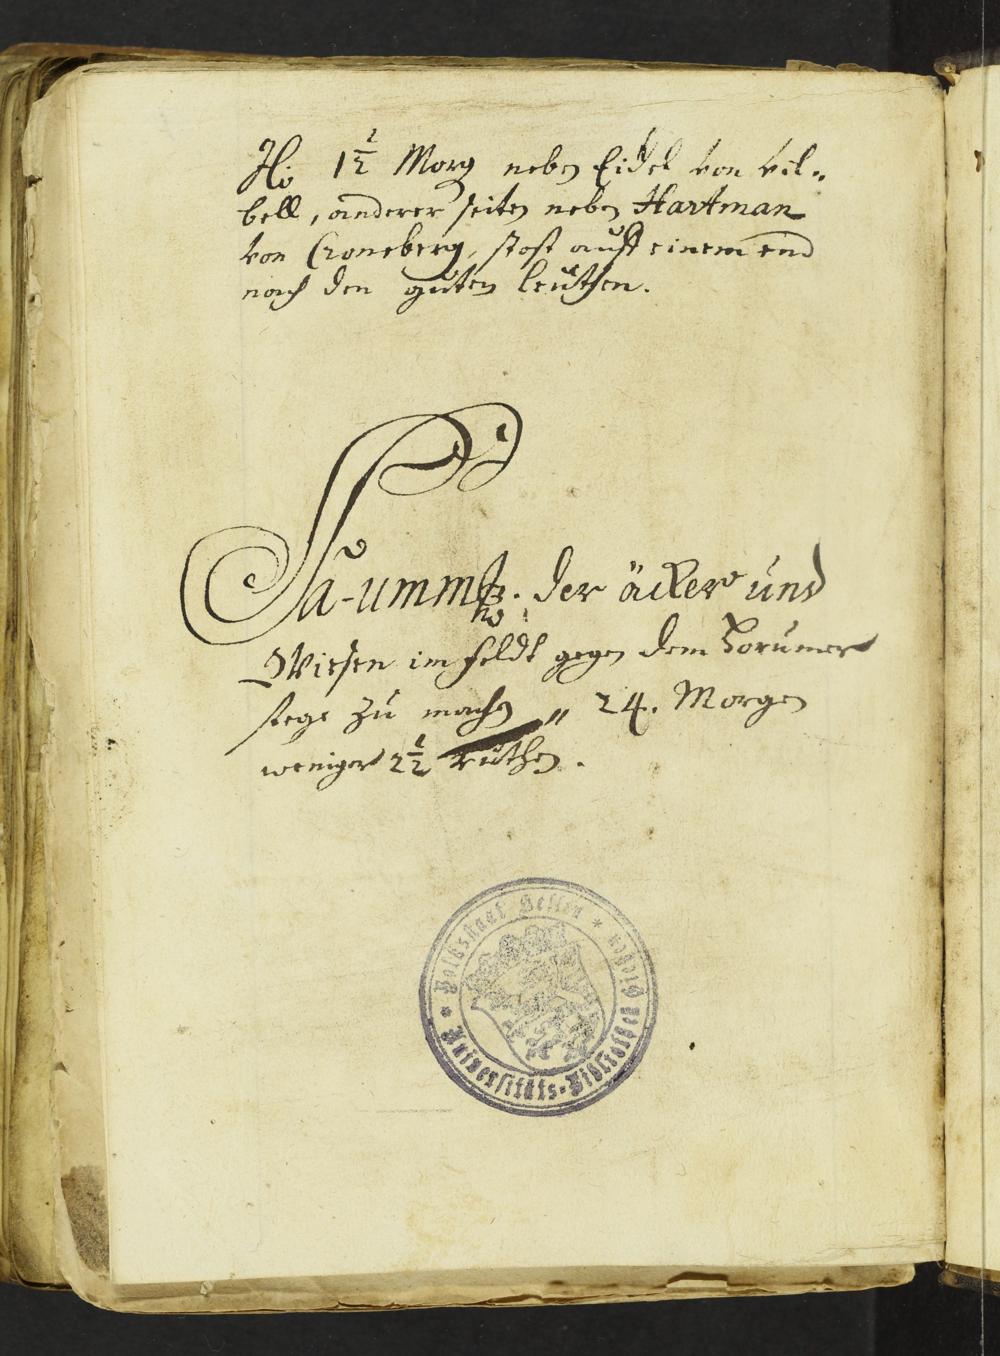 1 1/2 Morg neben Eidel von vil=
bell, anderer seiten neben Hartman
von Croneberg, stost auff einem end
nach den guten leuthen.
Sa-umma. der äcker und
Wiesen im feldt gegen dem Horumer
stege zu machen „ 24. Morgen
weniger 2 1/2 ruthen.
* Volksstaat Hessen * Universitäts-Bibliothek Gießen